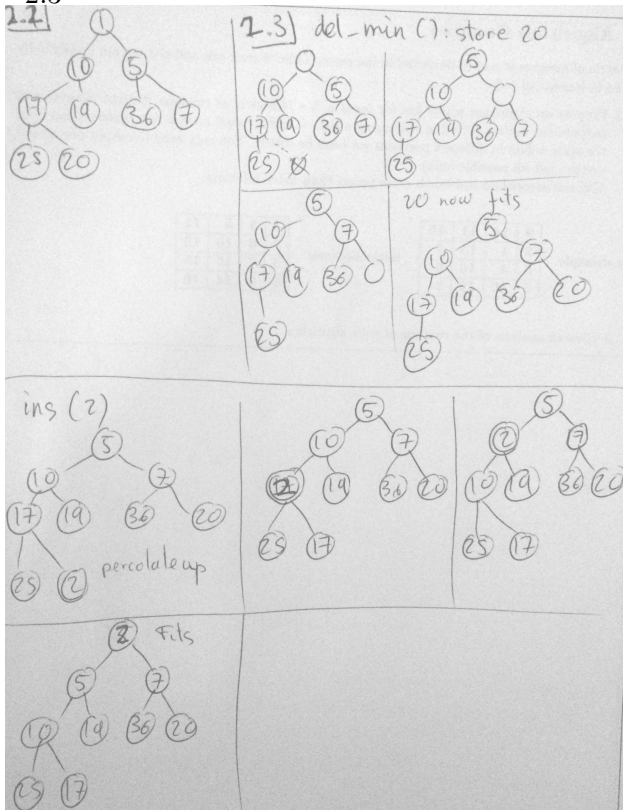 2.3
2.2
1
10 5
17 19 36 7
25 20
2.3] del_min () : store 20
10 5
17 19 36 7
25
5
10
17 19 36 7
25
5
10 7
17 19 36
25
20 now fits
5
10 7
17 19 36 20
25
ins (2)
5
10 7
17 19 36 20
25 2 percolate up
5
10 7
2 19 36 20
25 17
5
2 7
10 19 36 20
25 17
2 Fits
5 7
10 19 36 20
25 17